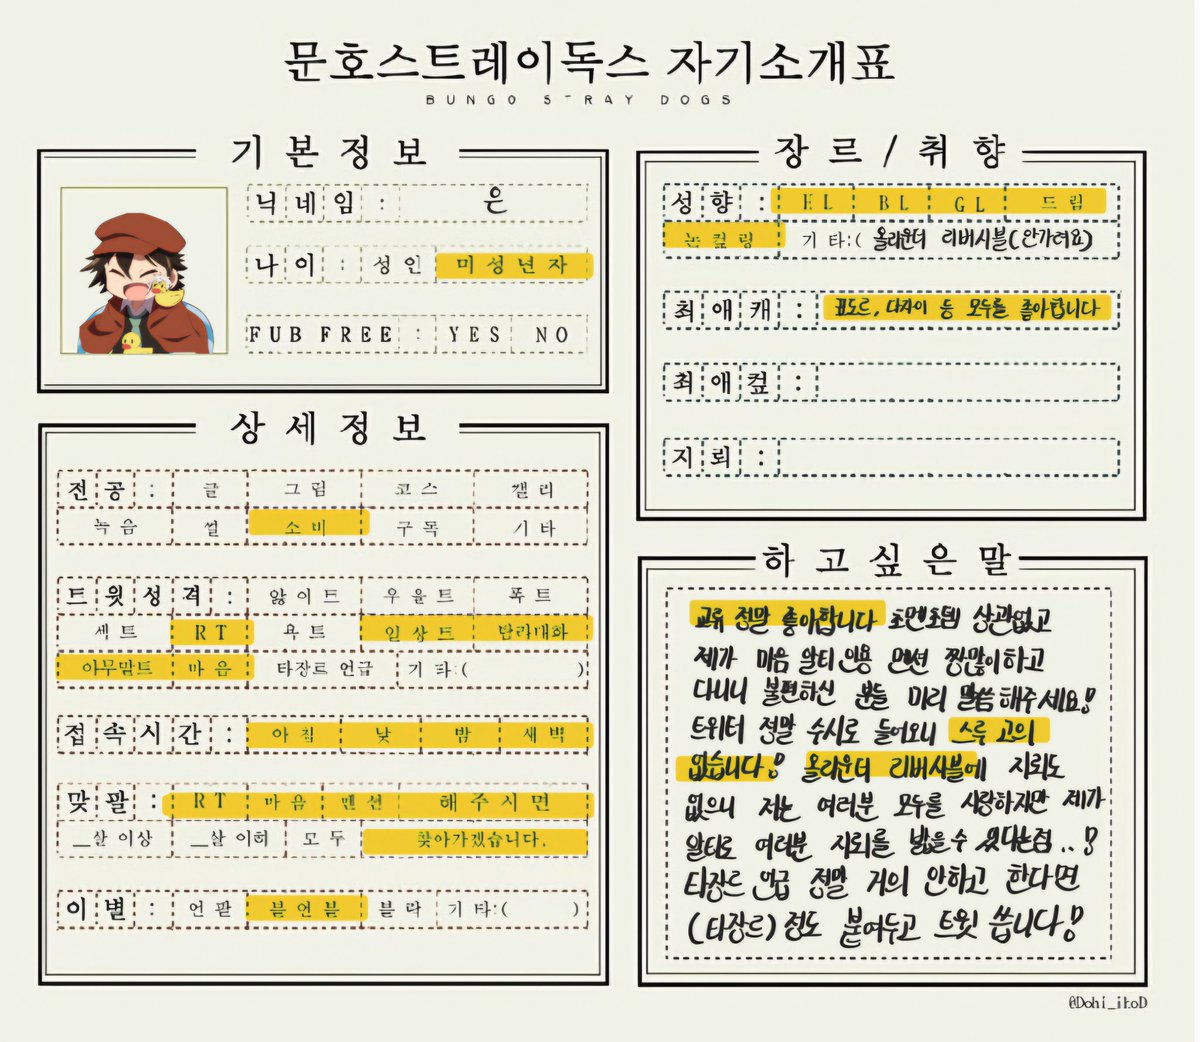 문호스트레이독스 자기소개표
BUNGO STRAY DOGS
기본정보
닉네임 : 은
나이 : 성인 미성년자
FUB FREE : YES NO
상세정보
전공 : 글 그림 코스 캘리
녹음 썰 소비 구독 기타
트윗성격 : 앓이트 우울트 폭트
세트 RT 욕트 일상트 탐라대화
아무말트 마음 타장트 언급 기타:( )
접속시간 : 아침 낮 밤 새벽
맞팔 : RT 마음 멘션 해주시면
__살 이상 __살 이하 모두 찾아가겠습니다.
이별 : 언팔 블언블 블락 기타:( )
장르/취향
성향 : HL BL GL 드림
논컾링 기타:( 올라운더 리버시블(안가려요)
최애캐 : 표도르, 다자이 등 모두를 좋아합니다
최애컾 :
지뢰 :
하고싶은말
교류 정말 좋아합니다 초멘초템 상관없고
제가 마음 알티 인용 멘션 짱많이하고
다니니 불편하신 분들 미리 말씀해주세요!
트위터 정말 수시로 들어오니 스루 고의
없습니다! 올라운더 리버시블에 지뢰도
없으니 저는 여러분 모두를 사랑하지만 제가
알티로 여러분 지뢰를 밟을수 있다는점..!
타장르 언급 정말 거의 안하고 한다면
(타장르)정도 붙여두고 트윗 씁니다!
@Dohi_itoD